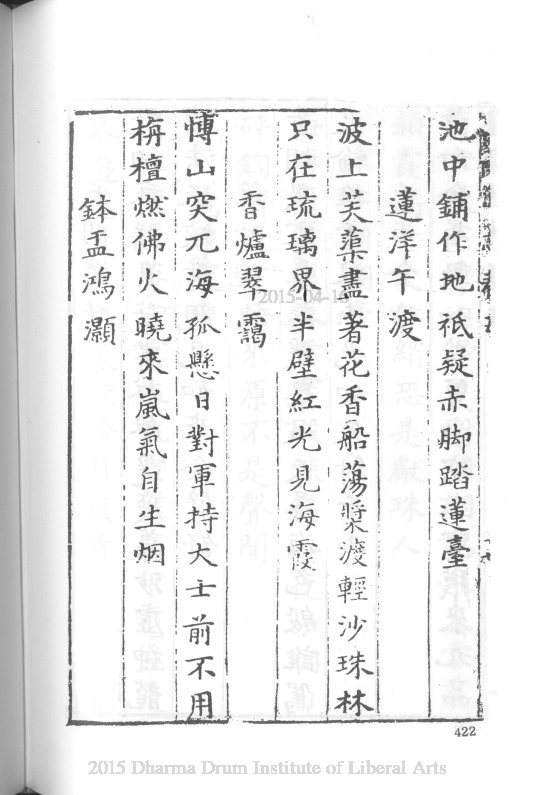 池中鋪作地祗疑赤脚踏蓮臺
蓮洋午渡
波上芙蕖盡著花香船蕩槳渡輕沙珠林
只在琉璃界半壁紅光見海霞
香爐翠靄
博山突兀海孤懸日對軍持大士前不用
栴檀燃佛火曉來嵐氣自生烟
鉢盂鴻灝
422
2015-04-16
2015 Dharma Drum Institute of Liberal Arts